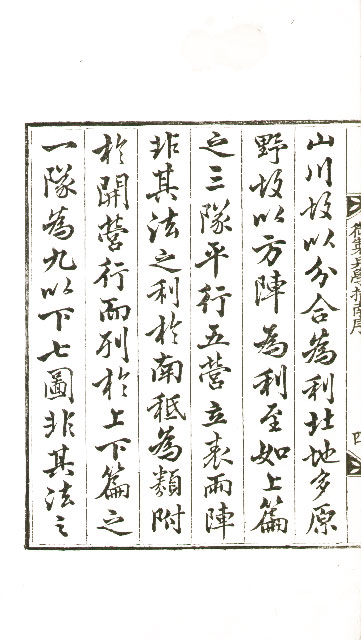 山川故以分合為利北地多原
野故以方陣為利至如上篇
之三隊平行五營立表兩陣
非其法之利於南秪為類附
於開營行而列於上下篇之
一隊為九以下七圖非其法之